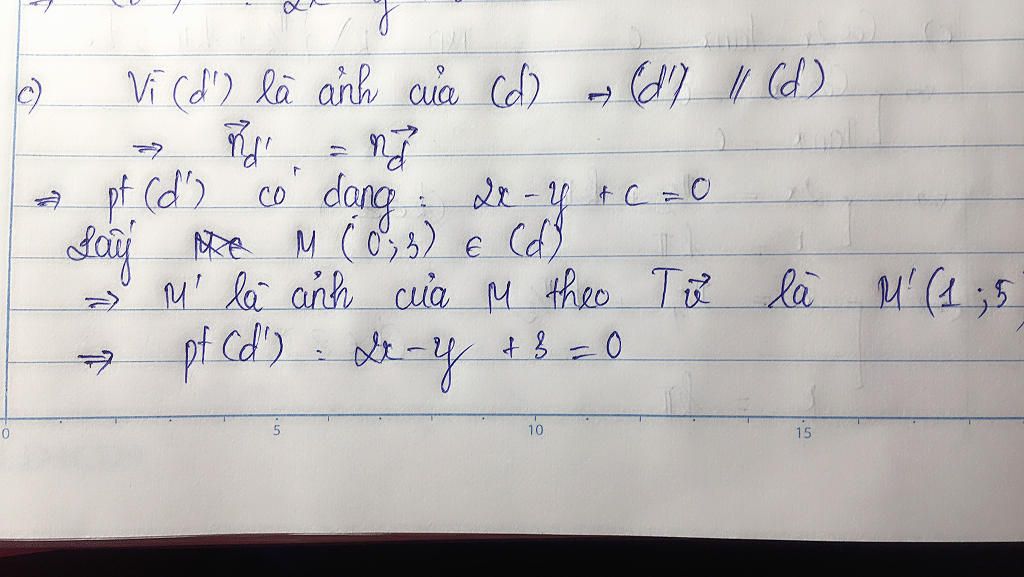 c) Vì (d') là ảnh của (d) → (d') // (d)
⇒ n⃗d' = n⃗d
⇒ pt (d') có dạng : 2x - y + c = 0
Lấy M (0;3) ∈ (d)
⇒ M' là ảnh của M theo Tv⃗ là M'(1;5)
⇒ pt (d') : 2x - y + 3 = 0
0 5 10 15